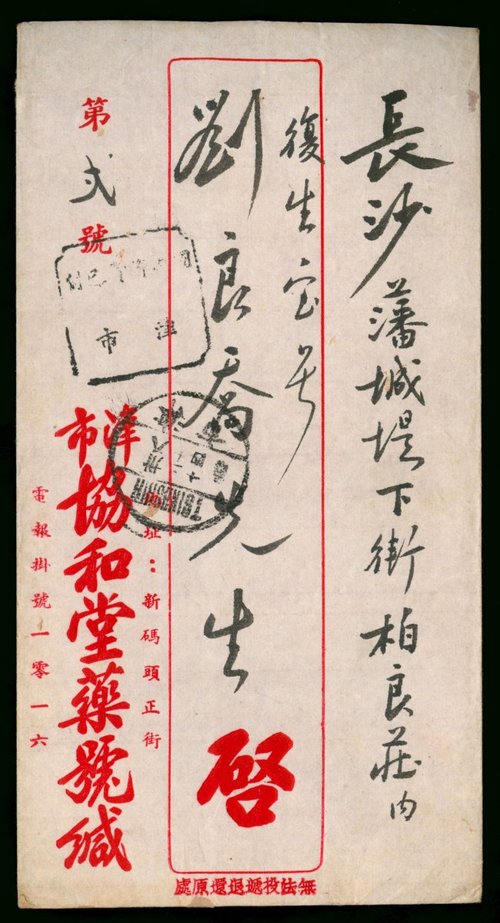 長沙藩城堤下街柏良莊内
復生宝号
劉良喬先生啓
無法投遞退還原處
地址：新碼頭正街
津市協和堂藥號緘
電報掛號一零一六
第弍號
津市
TSINSHIH